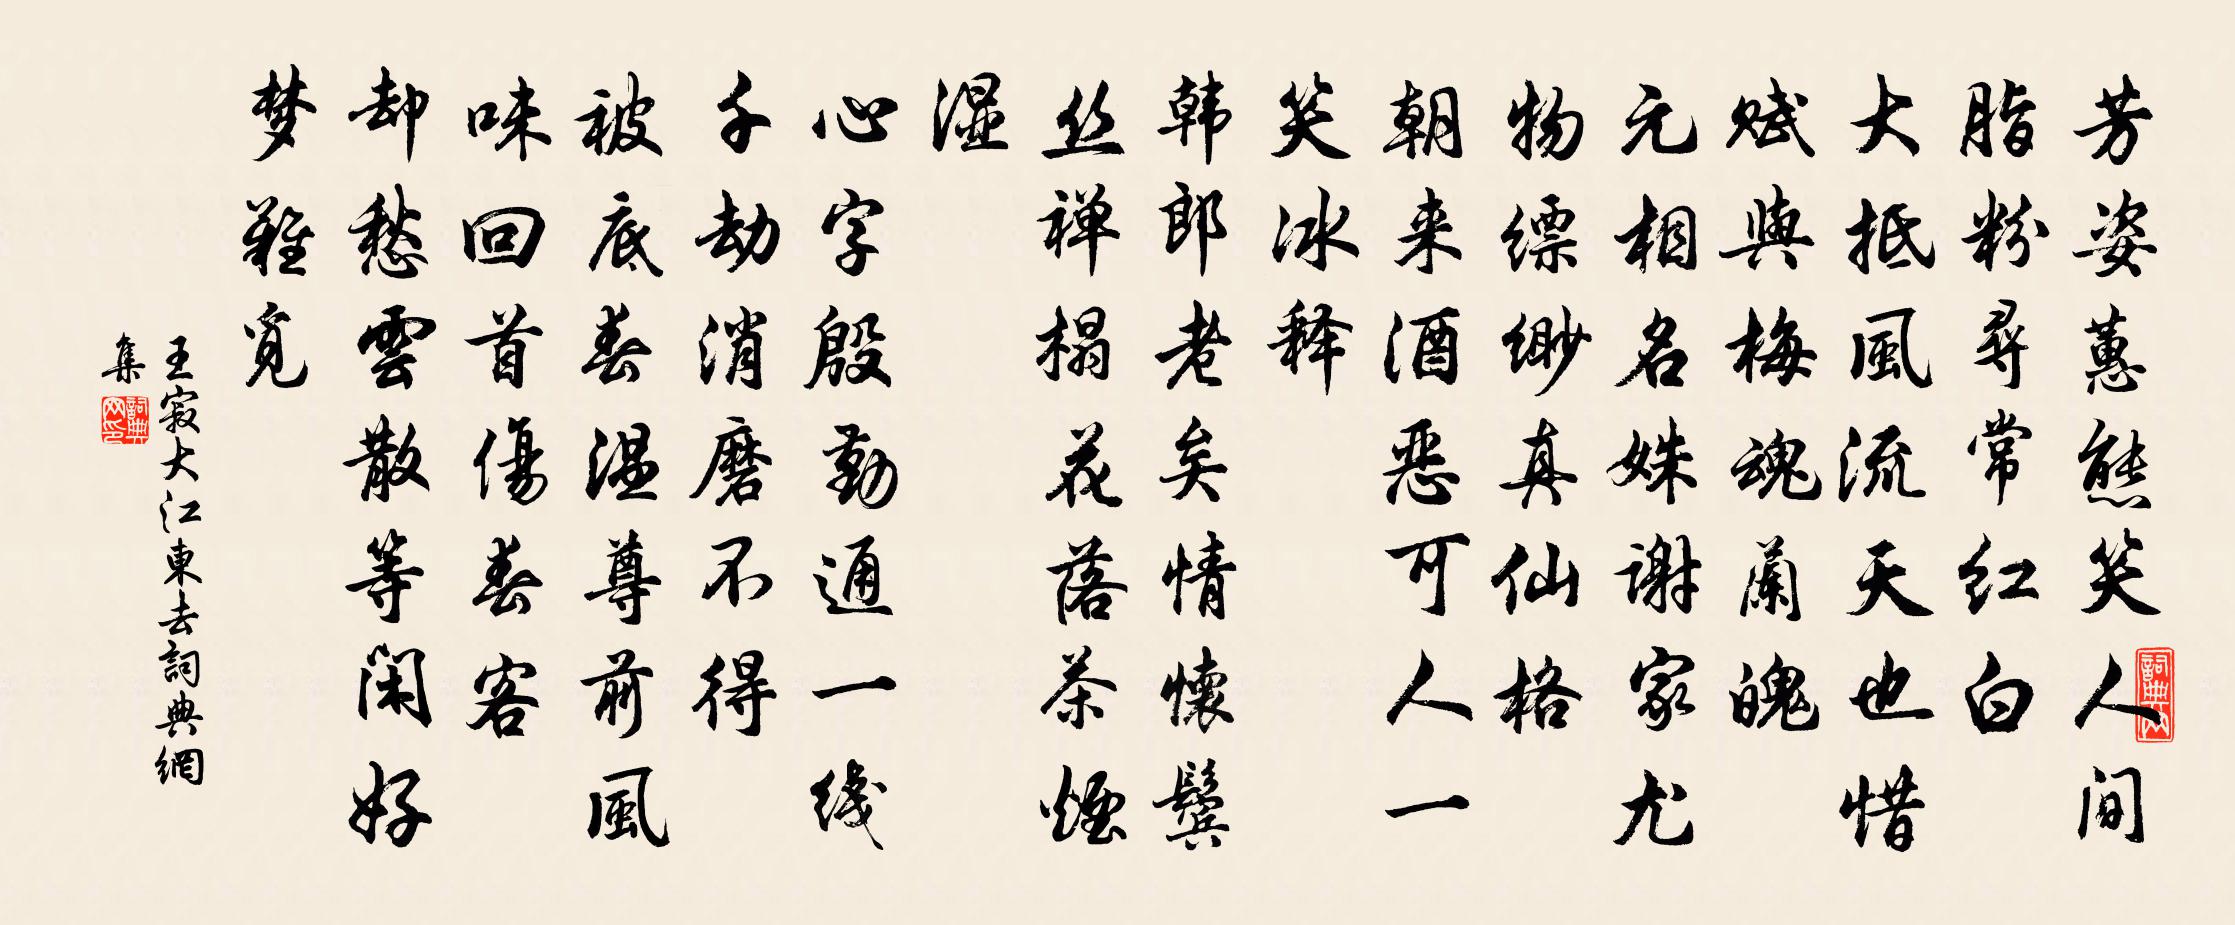 芳姿蕙態笑人间
脂粉尋常红白
大抵風流天也惜
赋與梅魂蘭魄
元相名姝謝家尤
物缥缈真仙格
朝来酒恶可人一
笑冰释
韩郎老矣情懷鬓
丝禅榻花落茶煙
湿
心字殷勤通一线
千劫消磨不得
被底春温尊前風
味回首傷春客
却愁雲散等闲好
梦難觅
王寂大江東去詞典網
集
詞典网印
詞典网